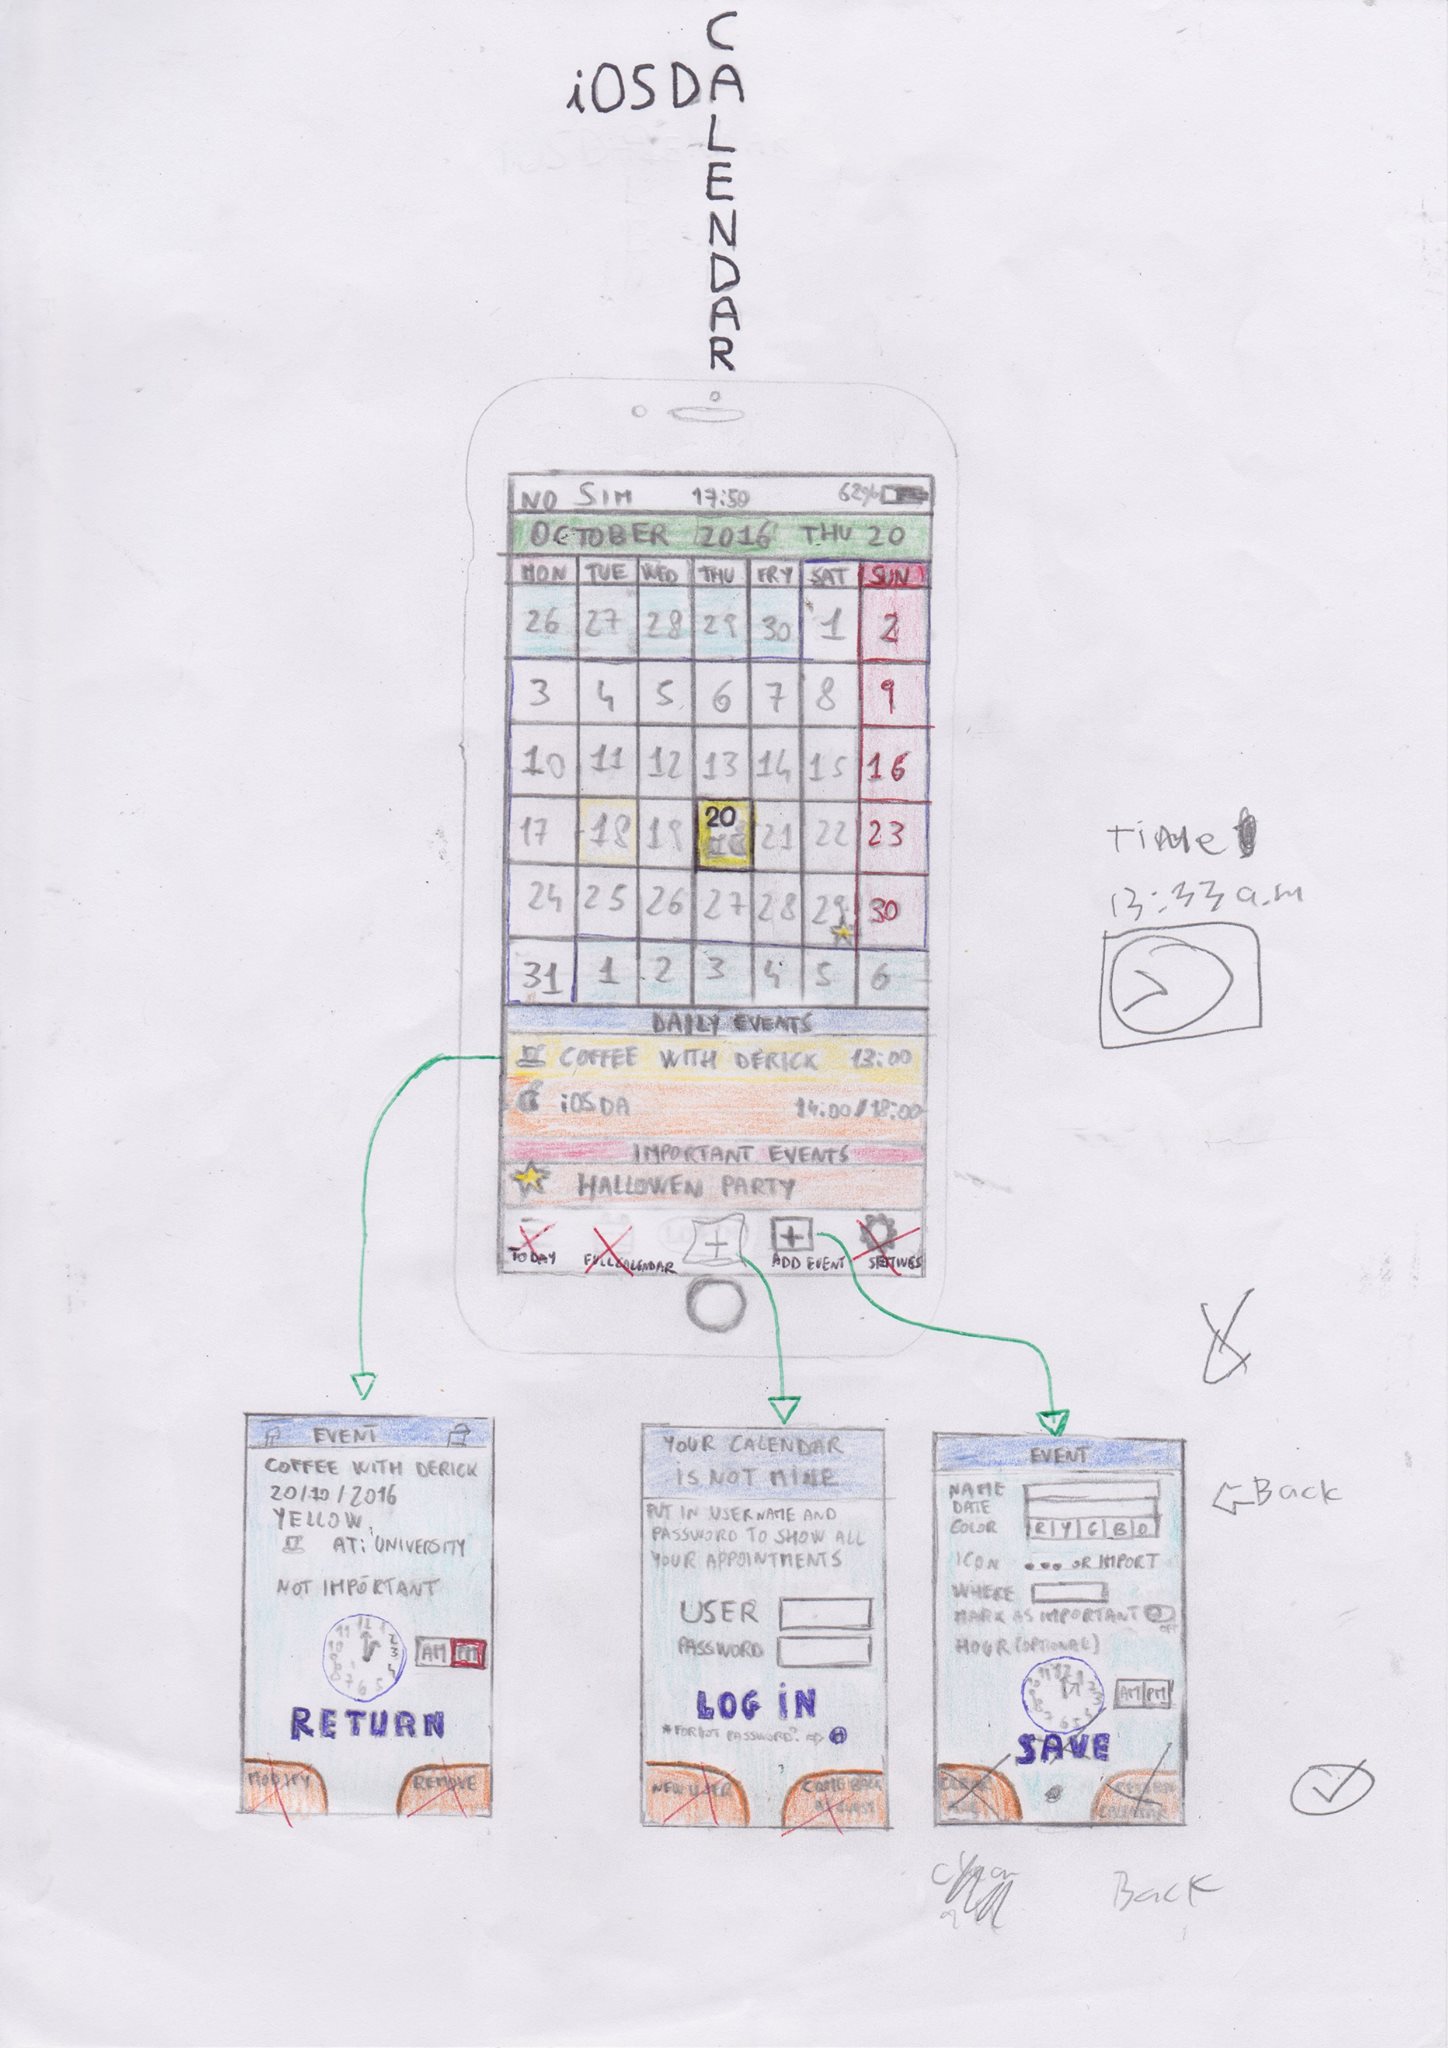 CALENDAR
iOSDA
NO SIM 17:50 62%
OCTOBER 2016 THU 20
MON TUE WED THU FRY SAT SUN
26 27 28 29 30 1 2
3 4 5 6 7 8 9
10 11 12 13 14 15 16
17 18 19 20 21 22 23
24 25 26 27 28 29 30
31 1 2 3 4 5 6
DAILY EVENTS
COFFEE WITH DERICK 13:00
iOSDA 14:00/18:00
IMPORTANT EVENTS
HALLOWEN PARTY
TODAY FULL CALENDAR + + ADD EVENT SETTINGS
Time
13:33 a.m
EVENT
COFFEE WITH DERICK
20/10/2016
YELLOW
AT: UNIVERSITY
NOT IMPORTANT
11 12 1 2 3 5 6 7 8 9 10
AM PM
RETURN
MODIFY REMOVE
YOUR CALENDAR
IS NOT MINE
PUT IN USERNAME AND
PASSWORD TO SHOW ALL
YOUR APPOINTMENTS
USER
PASSWORD
LOG iN
*FORGOT PASSWORD?
NEW USER COME BACK
EVENT
NAME
DATE
COLOR R Y G B O
ICON ... OR IMPORT
WHERE
MARK AS IMPORTANT OFF
HOUR (OPTIONAL)
AM PM
SAVE
CALENDAR
Back
Back